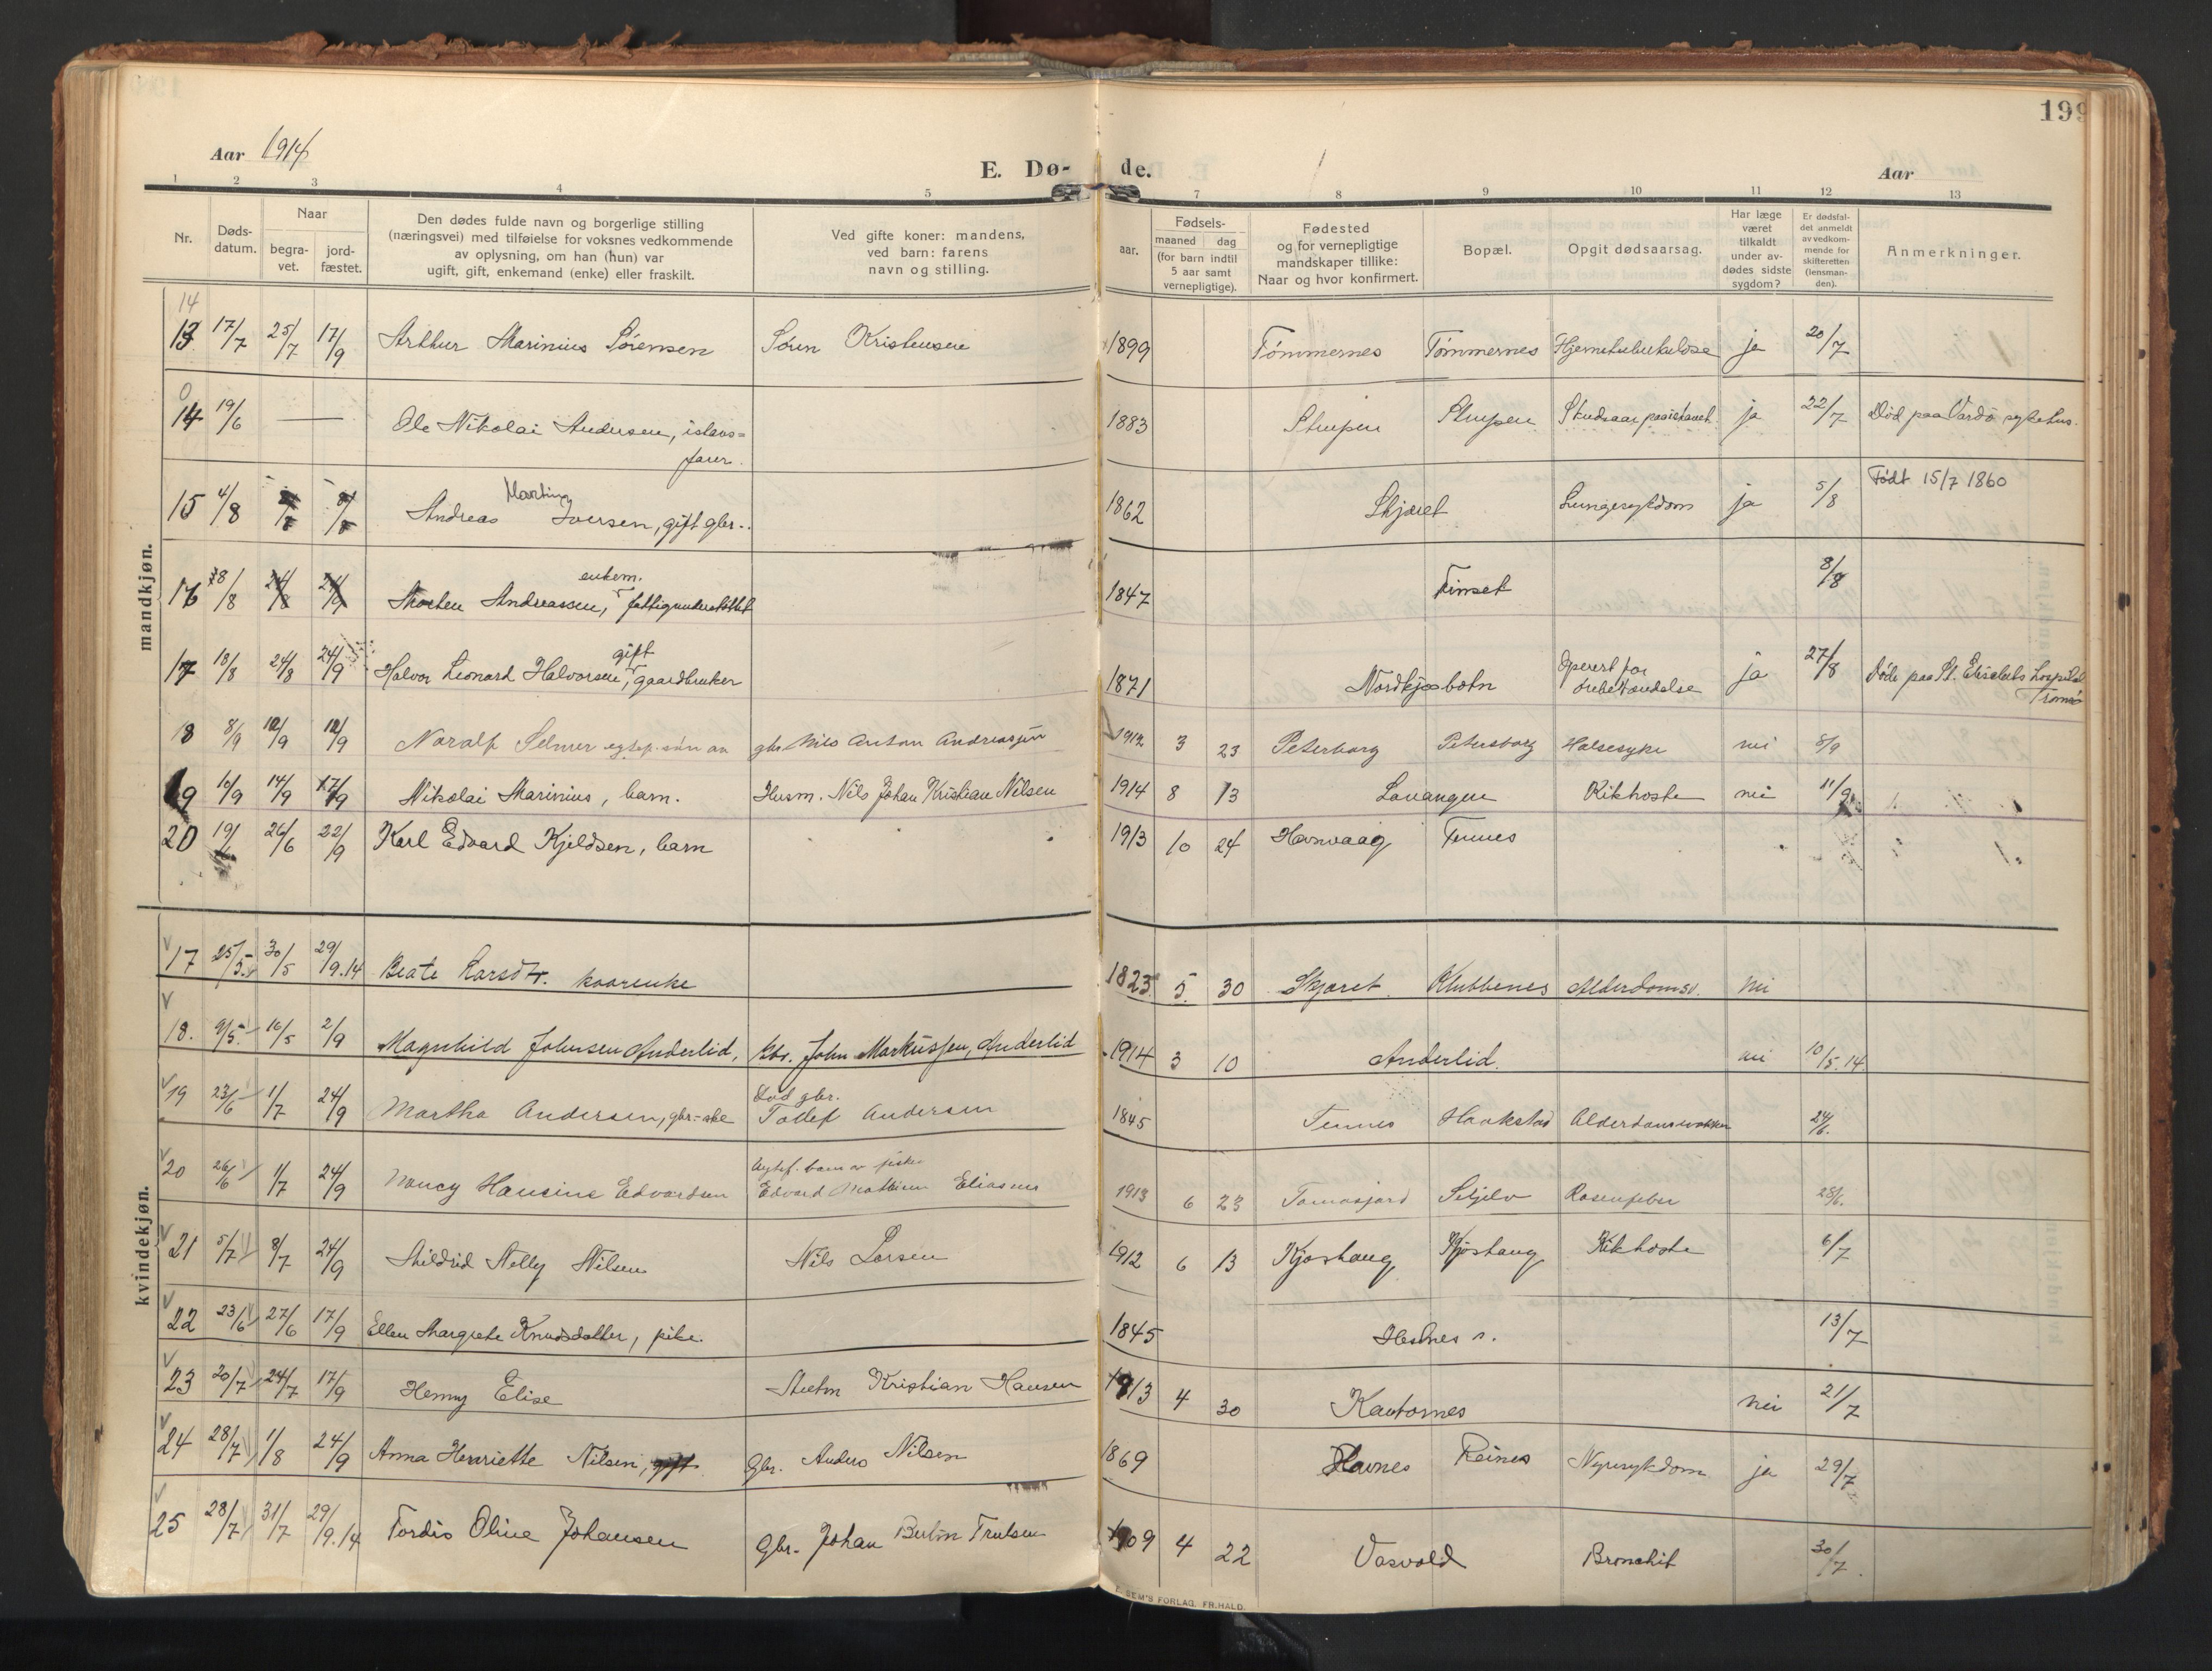 199
Aar 1914
E. Dø- de.
Aar
1 2 3 4 5 7 8 9 10 11 12 13
Nr.
Døds-
datum.
Naar
begra-
vet.
jord-
fæstet.
Den dødes fulde navn og borgerlige stilling
(næringsvei) med tilføielse for voksnes vedkommende
av oplysning, om han (hun) var
ugift, gift, enkemand (enke) eller fraskilt.
Ved gifte koner: mandens,
ved barn: farens
navn og stilling.
aar.
Fødsels-
maaned dag
(for barn indtil
5 aar samt
vernepligtige).
Fødested
og for vernepligtige
mandskaper tillike:
Naar og hvor konfirmert.
Bopæl.
Opgit dødsaarsag.
Har læge
været
tilkaldt
under av-
dødes sidste
sygdom?
Er dødsfal-
det anmeldt
av vedkom-
mende for
skifteretten
(lensman-
den).
Anmerkninger.
mandkjøn.
14
13 17/7 25/7 17/9 Arthur Marinius Sørensen Søren Kristensen 1899 Tømmernes Tømmernes Hjernetuberkulose ja 20/7
14 19/6 — Ole Nikolai Andersen, ishavs= 1883 Strupen Strupen ja 22/7 Død paa Vardø sykehus.
farer.
Martin
15 4/8 Andreas Iversen, gift gbr. 1862 Skjæret Lungesykdom ja 5/8 Født 15/7 1860
enkem.
16 8/8 24/8 24/9 Morten Andreassen, fattigunderstøttet 1847 Finset 8/8
gift
17 18/8 24/8 24/9 Halvor Leonard Halvorsen, gaardbruker 1871 Nordkjosbotn Operert for ja 27/8 Døde paa St. Elisabets hospital
ørebetændelse Tromsø
18 8/9 12/9 12/9 Noralf Selmer egtef. søn av gbr. Nils Anton Andreassen 1912 3 23 Peterborg Petersborg Halsesyke nei 8/9
19 10/9 14/9 17/9 Nikolai Marinius, barn. Husm. Nils Johan Kristian Nilsen 1914 8 13 Lavangen Kikhoste nei 11/9
20 19/ 26/6 22/9 Karl Edvard Kjeldsen, barn 1913 10 24 Havnvaag Tennes
kvindekjøn.
17 25/5 30/5 29/9.14 Beate Larsdtr. kaarenke 1823 5. 30 Skjæret. Klubbenes Alderdomsv. nei
18. 9/5. 16/5 2/9 Magnhild Johnsen Anderlid, Gbr. John Markussen, Anderlid 1914 3 10 Anderlid. nei 10/5.14
Død gbr.
19 23/6 1/7 24/9 Martha Andersen, gbr.-enke Tollef Andersen 1845 Tennes Haakstad 24/6.
Egtef. barn av fisker
20 26/6 1/7 24/9 Nancy Hansine Edvardsen Edvard Mathisen Eliasen 1913 6 23 Tomasjord Seljelv Rosenfeber 28/6.
21 5/7 8/7 24/9 Hildrid Nelly Nilsen Nils Larsen 1912 6 13 Kjoshaug Kjøshaug Kikhoste 6/7
22 23/6 27/6 17/9 Ellen Margrete Knudsdatter, pike. 1845 Hestnes s. 13/7
23 20/7 24/7 17/9 Henny Elise Kristian Hansen 1913 4 30 Kantornes nei 21/7
24 28/7 1/8 24/9 Anna Henriette Nilsen, gift Gbr. Anders Nilsen 1869 Havnes Reines Nyresykdom ja 29/7
25 28/7 31/7 29/9.14 Tordis Oline Johansen Gbr. Johan Bertin Trulsen 1909 4 22 Vasvold Bronchit 30/7
E. SEM'S FORLAG, FR.HALD.